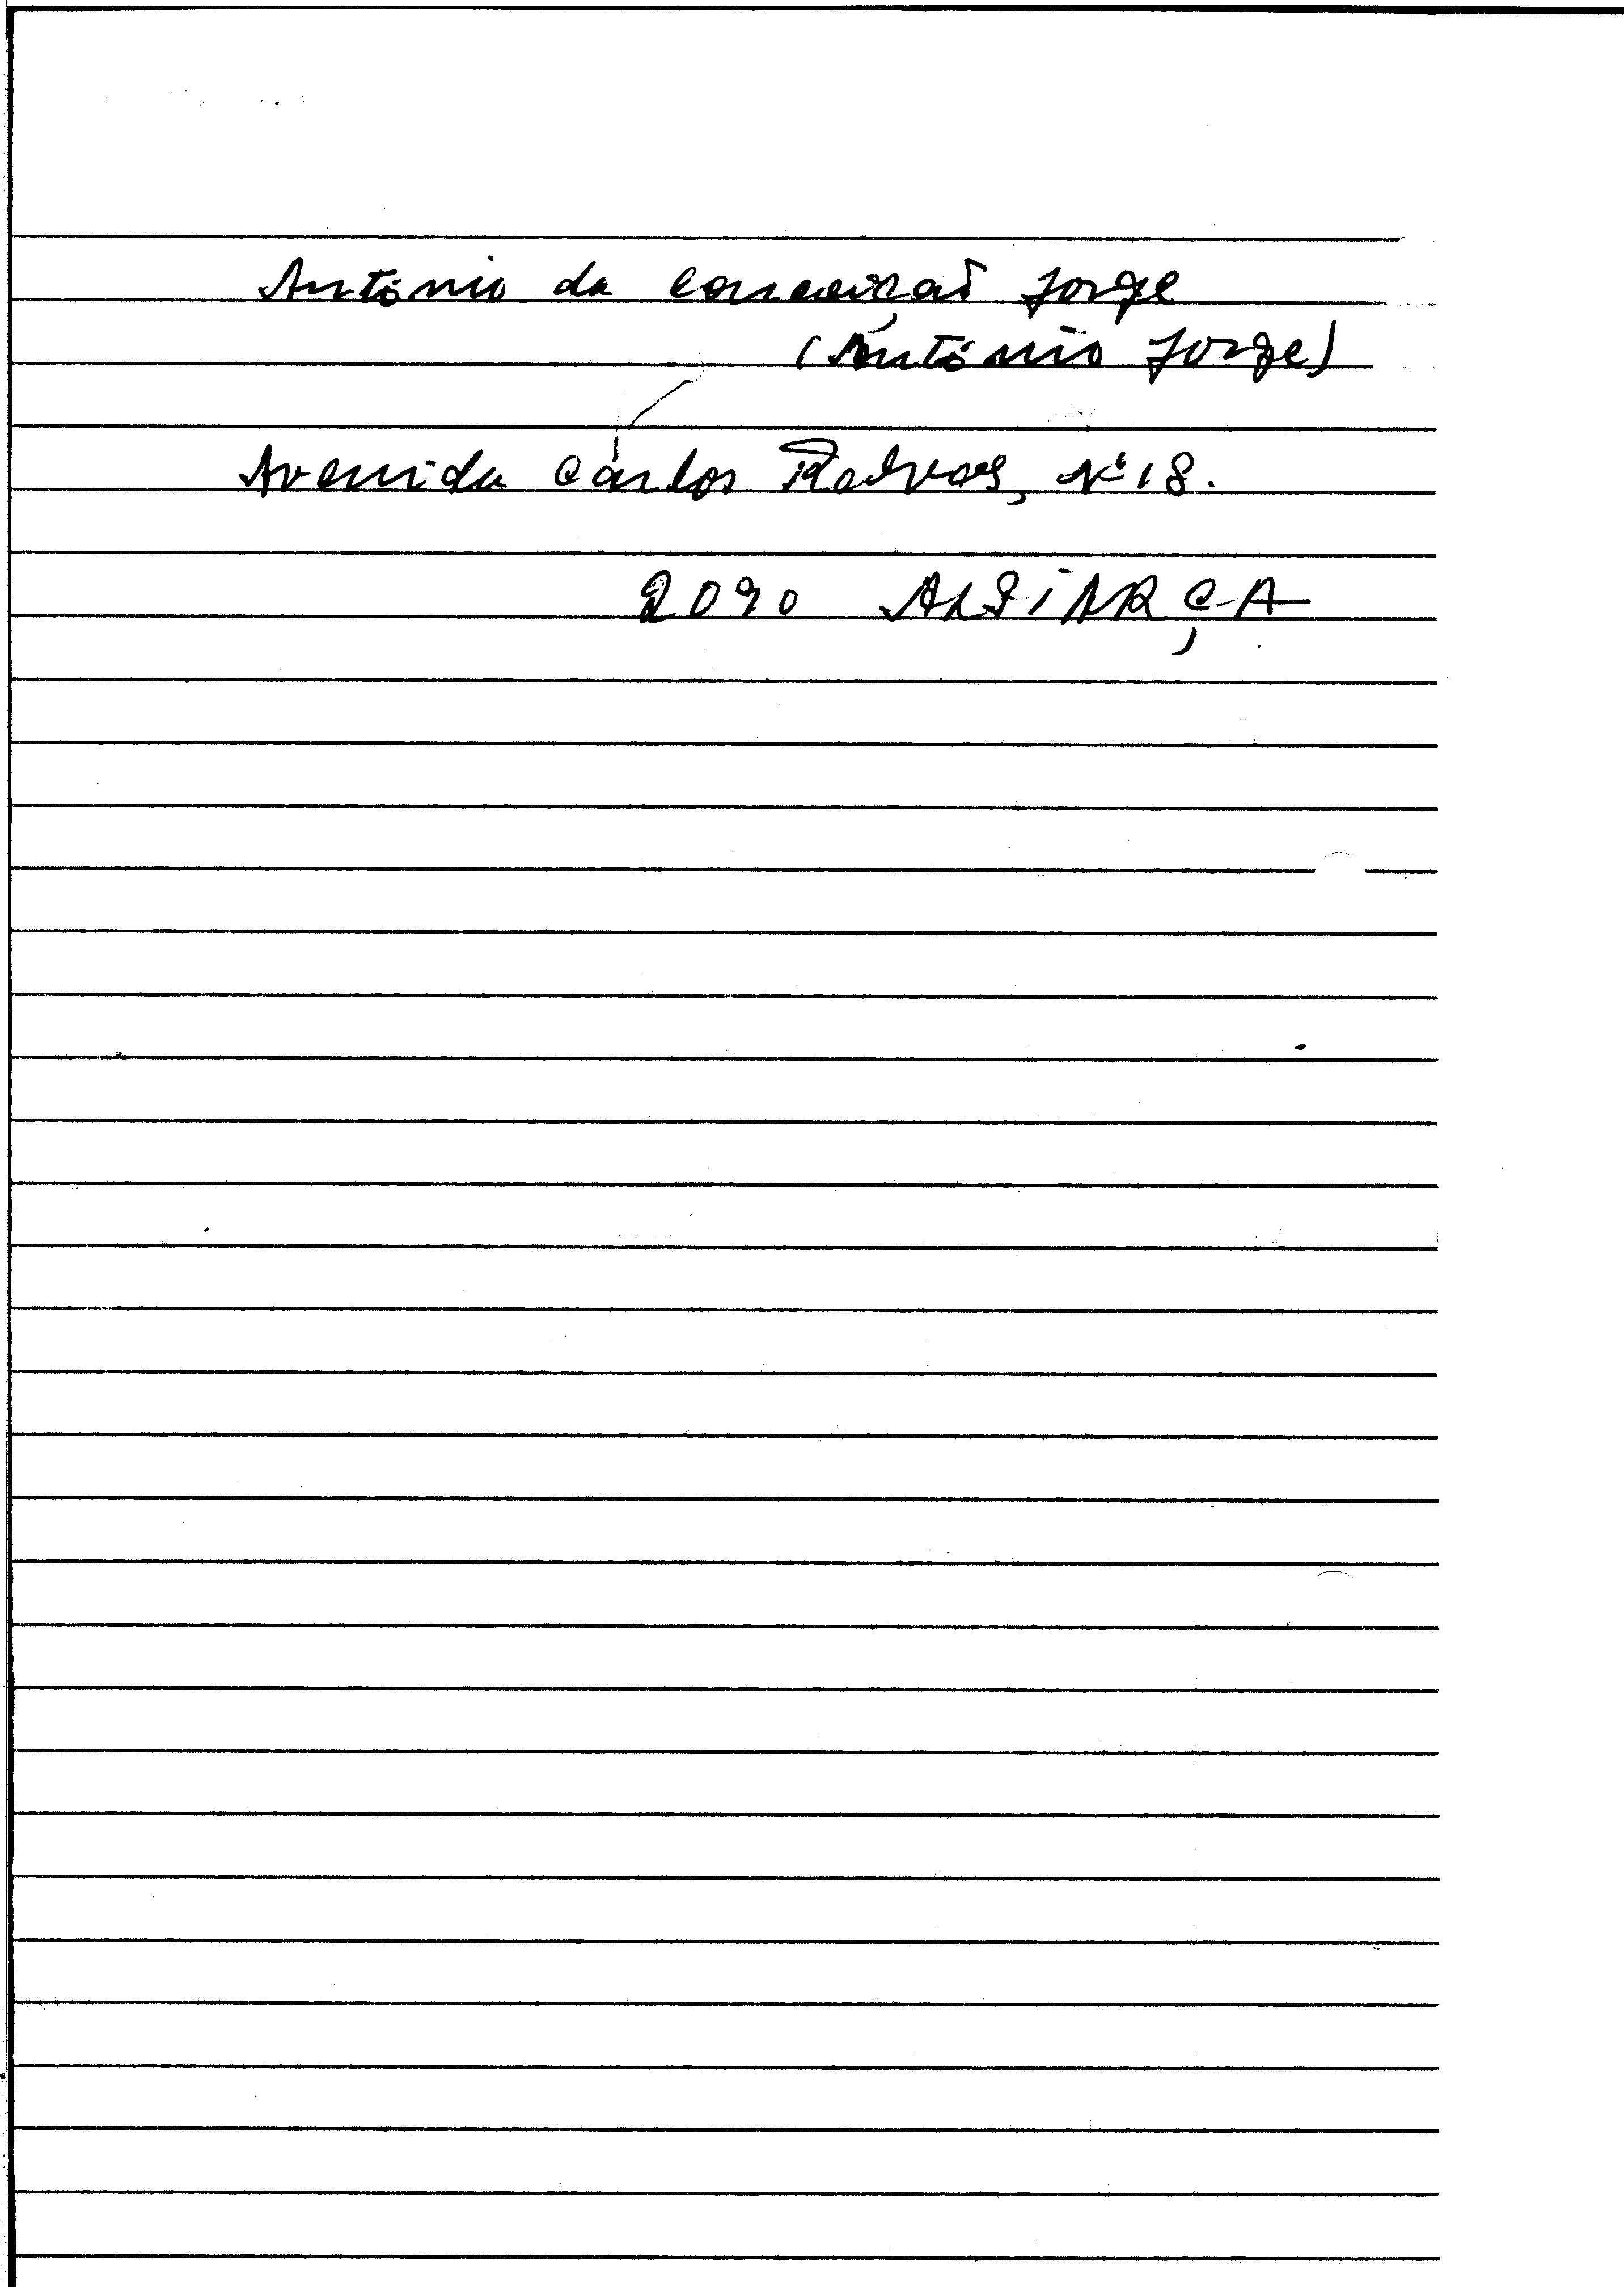 António da Conceição Jorge
(António Jorge)
Avenida Carlos Relvas, Nº 18.
2090 ALPIARÇA